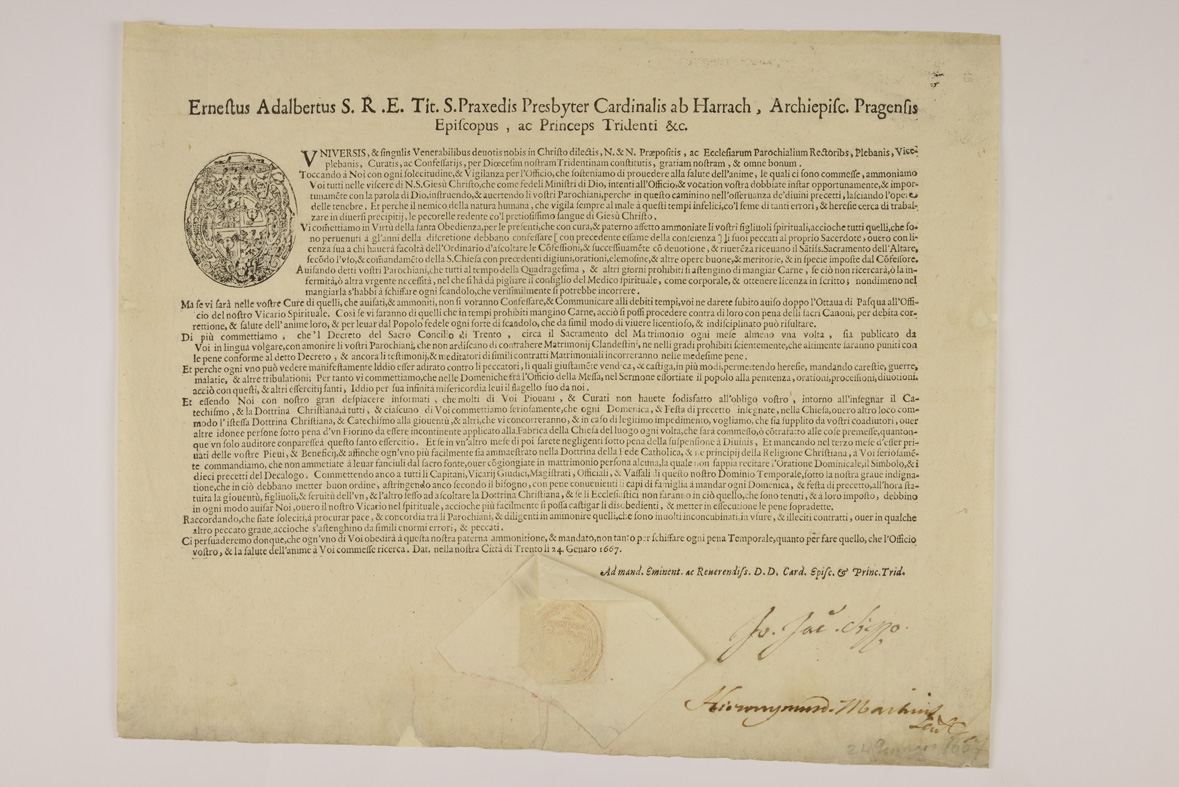 Erneſtus Adalbertus S. R .E. Tit. S.Praxedis Presbyter Cardinalis ab Harrach , Archiepiſc. Pragenſis
Epiſcopus , ac Princeps Tridenti &c.
VNIVERSIS, & ſingulis Venerabilibus deuotis nobis in Chriſto dilectis, N. & N. Præpoſitis , ac Eccleſiarum Parochialium Rectoribus, Plebanis, Vice-
plebanis, Curatis, ac Confeſſarijs, per Diœceſim noſtram Tridentinam conſtitutis, gratiam noſtram, & omne bonum.
Toccando à Noi con ogni ſolecitudine,& Vigilanza per l'Officio, che ſoſteniamo di prouedere alla ſalute dell'anime, le quali ci ſono commeſſe, ammoniamo
Voi tutti nelle viſcere di N.S.Gieſù Chriſto,che come fedeli Miniſtri di Dio, intenti all'Officio,& vocation voſtra dobbiate inſtar opportunamente,& impor-
tunamẽte con la parola di Dio,inſtruendo,& auertendo li voſtri Parochiani,perche in queſto caminino nell'oſſeruanza de'diuini precetti, laſciando l'opere
delle tenebre . Et perche il nemico della natura humana , che vigila ſempre al male à queſti tempi infelici,co'l ſeme di tanti errori , & hereſie cerca di trabal-
zare in diuerſi precipitij, le pecorelle redente co'l pretioſiſſimo ſangue di Gieſù Chriſto.
Vi cõmettiamo in Virtù della ſanta Obedienza,per le preſenti,che con cura,& paterno affetto ammoniate li voſtri figliuoli ſpirituali,accioche tutti quelli,che ſo-
no peruenuti à gl'anni della diſcretione debbano confeſſare [ con precedente eſſame della conſcienza ] li ſuoi peccati al proprio Sacerdote , ouero con li-
cenza ſua à chi hauerà facoltà dell'Ordinario d'aſcoltare le Cõfeſſioni,& ſucceſſiuamẽte cõ deuotione , & riuerẽza riceuano il Sãtiſs.Sacramento dell'Altare,
ſecõdo l'vſo,& comãdamẽto della S.Chieſa con precedenti digiuni,orationi,elemoſine,& altre opere buone,& meritorie, & in ſpecie impoſte dal Cõfeſſore.
Auiſando detti voſtri Parochiani,che tutti al tempo della Quadrageſima , & altri giorni prohibiti ſi aſtengino di mangiar Carne, ſe ciò non ricercarà,ò la in-
fermità,ò altra vrgente neceſſità, nel che ſi hà da pigliare il conſiglio del Medico ſpirituale, come corporale, & ottenere licenza in ſcritto; nondimeno nel
mangiarla s'habbi à ſchiffare ogni ſcandalo,che veriſimilmente ſi potrebbe incorrere.
Ma ſe vi ſarà nelle voſtre Cure di quelli, che auiſati,& ammoniti, non ſi voranno Confeſſare,& Communicare alli debiti tempi,voi ne darete ſubito auiſo doppo l'Ottaua di Paſqua all'Offi-
cio del noſtro Vicario Spirituale. Così ſe vi ſaranno di quelli che in tempi prohibiti mangino Carne, acciò ſi poſſi procedere contra di loro con pena delli ſacri Canoni, per debita cor-
rettione, & ſalute dell'anime loro, & per leuar dal Popolo fedele ogni ſorte di ſcandolo, che da ſimil modo di viuere licentioſo, & indiſciplinato può riſultare.
Di più commettiamo , che 'l Decreto del Sacro Concilio di Trento , circa il Sacramento del Matrimonio ogni meſe almeno vna volta , ſia publicato da
Voi in lingua volgare,con amonire li voſtri Parochiani, che non ardiſcano di contrahere Matrimonij Clandeſtini, ne nelli gradi prohibiti ſcientemente,che altimente ſaranno puniti con
le pene conforme al detto Decreto , & ancora li teſtimonij,& meditatori di ſimili contratti Matrimoniali incorreranno nelle medeſime pene.
Et perche ogni vno può vedere manifeſtamente Iddio eſſer adirato contro li peccatori, li quali giuſtamẽte vendica, & caſtiga,in più modi,permettendo hereſie, mandando careſtie, guerre,
malatie, & altre tribulationi: Per tanto vi commettiamo,che nelle Domeniche frà l'Officio della Meſſa, nel Sermone eſſortiate il popolo alla penitenza, orationi,proceſſioni, diuotioni,
acciò con queſti, & altri eſſercitij ſanti , Iddio per ſua infinita miſericordia leui il flagello ſuo da noi.
Et eſſendo Noi con noſtro gran deſpiacere informati , che molti di Voi Piouani , & Curati non hauete ſodisfatto all'obligo voſtro , intorno all'inſegnar il Ca-
techiſmo , & la Dottrina Chriſtiana,à tutti , & ciaſcuno di Voi commettiamo ſerioſamente,che ogni Domenica, & Feſta di precetto inſegnate, nella Chieſa,ouero altro loco com-
modo l'iſteſſa Dottrina Chriſtiana, & Catechiſmo alla giouentù,& altri,che vi concorreranno, & in caſo di legitimo impedimento, vogliamo, che ſia ſupplito da voſtri coadiutori , ouer
altre idonee perſone ſotto pena d'vn Fiorino da eſſere incontinente applicato alla Fabrica della Chieſa del luogo ogni volta,che ſarà commeſſo,ò cõtrafatto alle coſe premeſſe,quanton-
que vn ſolo auditore conpareſſe à queſto ſanto eſſercitio. Et ſe in vn'altro meſe di poi ſarete negligenti ſotto pena della ſuſpenſione à Diuinis , Et mancando nel terzo meſe d'eſſer pri-
uati delle voſtre Pieui, & Beneficij,& affinche ogn'vno più facilmente ſia ammaeſtrato nella Dottrina della Fede Catholica, & ne principij della Religione Chriſtiana , à Voi ſerioſamẽ-
te commandiamo, che non ammetiate à leuar fanciuli dal ſacro fonte,ouer cõgiongiate in matrimonio perſona alcuna,la quale non ſappia recitare l'Oratione Dominicale,il Simbolo,& i
dieci precetti del Decalogo. Commettendo anco à tutti li Capitani, Vicarij Giudici,Magiſtrati, Officiali, & Vaſſalli di queſto noſtro Dominio Temporale,ſotto la noſtra graue indigna-
tione,che in ciò debbano metter buon ordine, aſtringendo anco ſecondo il biſogno, con pene conuenienti li capi di famiglia à mandar ogni Domenica, & feſta di precetto,all'hora ſta-
tuita la giouentù, figliuoli,& ſeruitù dell'vn , & l'altro ſeſſo ad aſcoltare la Dottrina Chriſtiana , & ſe li Eccleſiaſtici non faranno in ciò quello,che ſono tenuti, & à loro impoſto, debbino
in ogni modo auiſar Noi ,ouero il noſtro Vicario nel ſpirituale , accioche più facilmente ſi poſſa caſtigar li diſobedienti , & metter in eſſecutione le pene ſopradette.
Raccordando,che ſiate ſoleciti,à procurar pace , & concordia trà li Parochiani, & diligenti in ammonire quelli,che ſono inuolti in concubinati,in vſure, & illeciti contratti , ouer in qualche
altro peccato graue,accioche s'aſtenghino da ſimili enormi errori , & peccati.
Ci perſuaderemo donque,che ogn'vno di Voi obedirà à queſta noſtra paterna ammonitione, & mandato,non tanto per ſchiffare ogni pena Temporale,quanto per fare quello, che l'Officio
voſtro, & la ſalute dell'anime à Voi commeſſe ricerca. Dat. nella noſtra Città di Trento li 24. Genaro 1667.
Ad mand. Eminent. ac Reuerendiſs. D. D. Card. Epiſc. & Princ. Trid.
Hieronymus